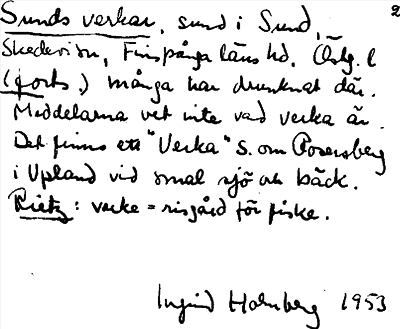 2
Sunds verkar, sund i Sund,
Skedevi sn, Finspånga läns hd, Östg. l
(forts.) många har drunknat där.
Meddelarna vet inte vad verka är.
Det finns ett "Verka" s. om Rosersberg
i Upland vid smal sjö och bäck.
Rietz: värke = risgård för fiske.
Ingrid Holmberg 1953